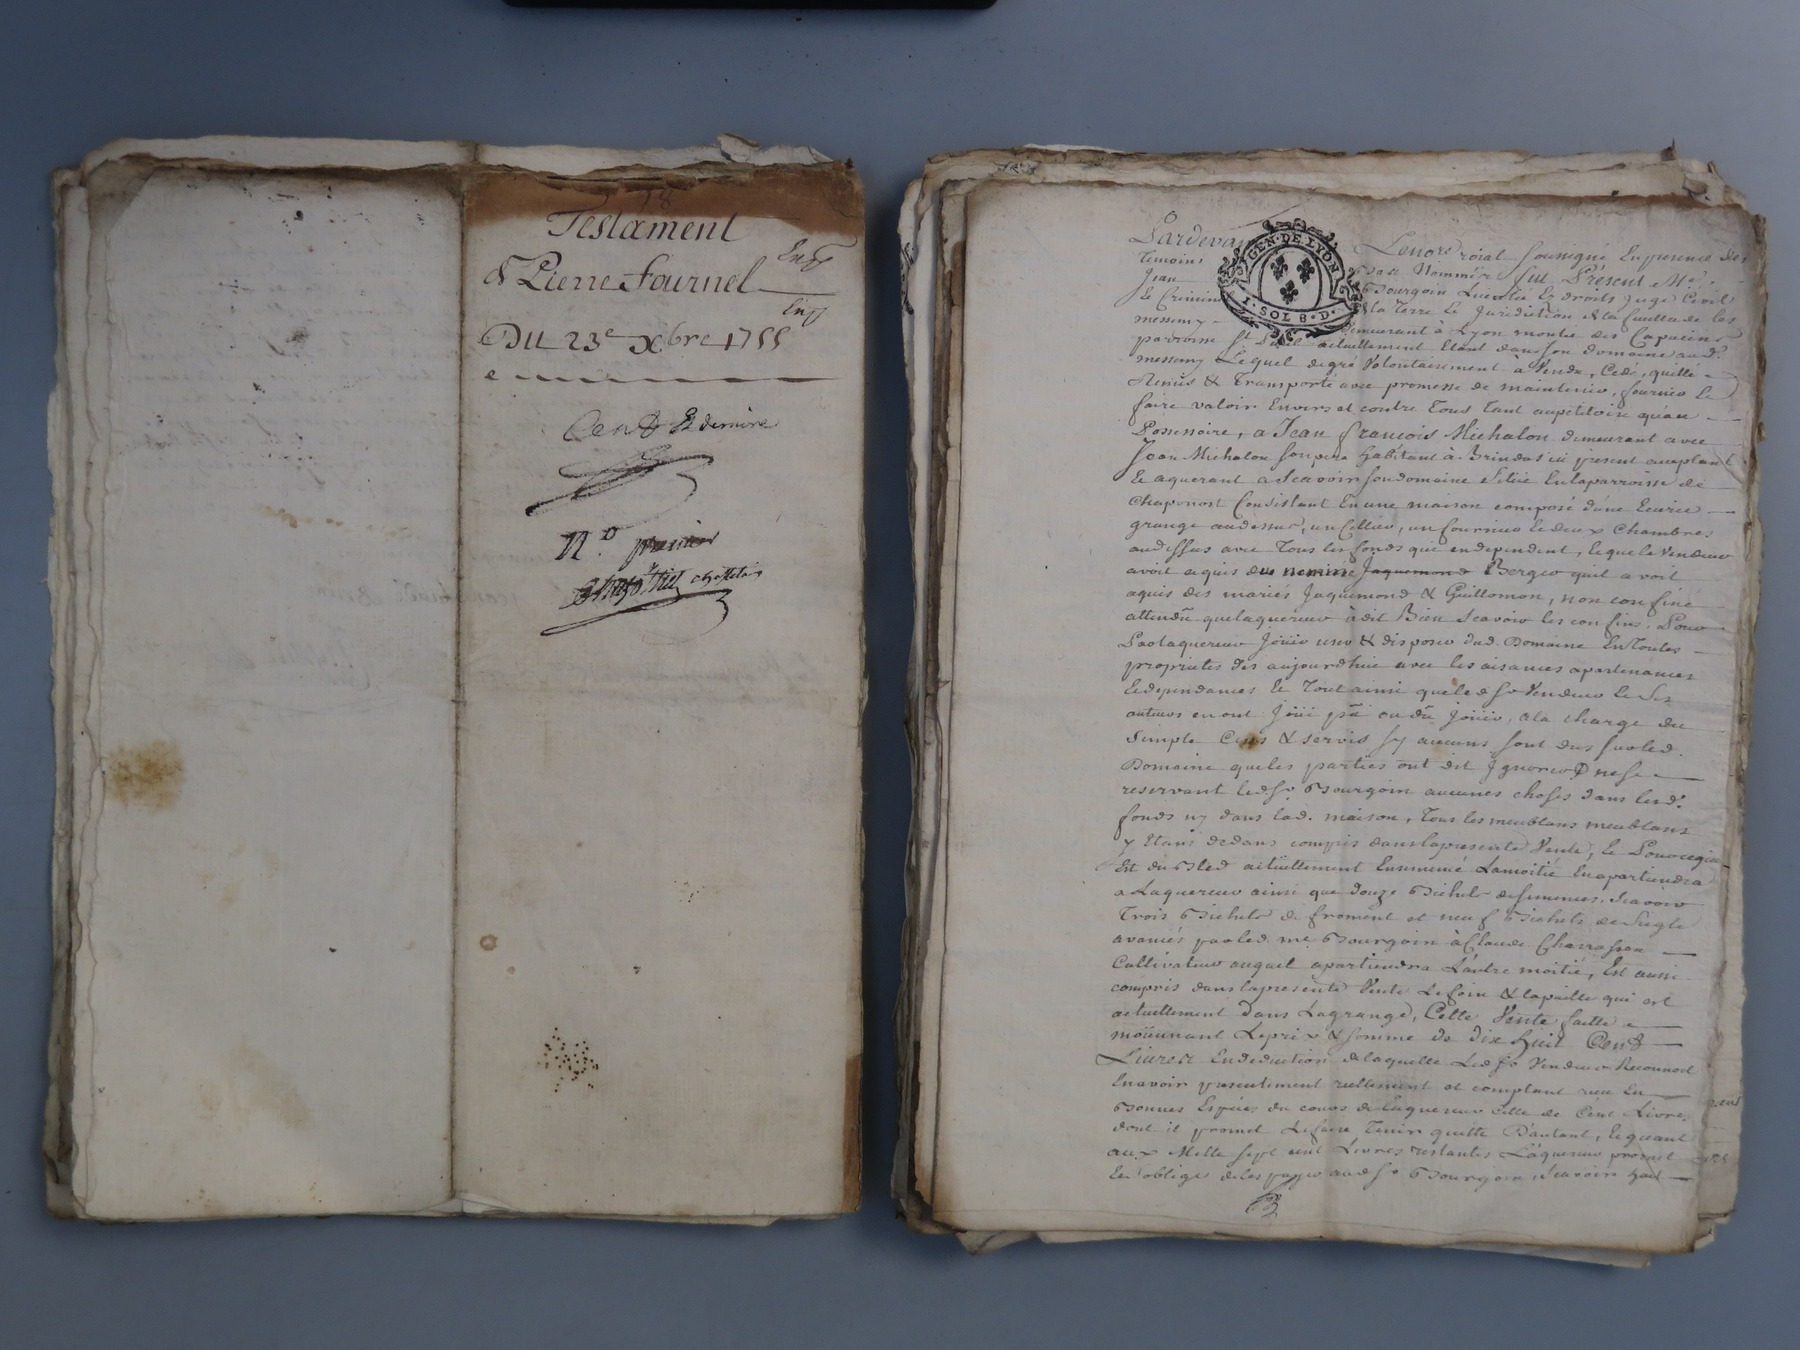 78
Testament
Exp
de Pierre Fournel
Exp
Du 23e Xbre 1755
Cent & dernire
N.o premier
chastelain
Pardevan Lenore roial soussigne En presence des
temoins Bas Nommés fut Présent Me
Jean Bourgoin Licentié Ez droits Juge Civil
& Crimin de la Terre & Juridiction
messimy demeurant à Lyon montée des Capucins
parroisse St actuellement Etant dans son domaine aud.
messimy Lequel de gré Volontairement à Vendu, Cedé, quitté
Remis & Transporté avec promesse de maintenir, fournir &
faire valoir Envers et contre Tous Tant au petitoire qu'au
Possessoire, a Jean françois Michalon demeurant avec
Jean Michalon son pere habitant à Brindas ici present acceptant
& aquerant a Scavoir son domaine Situé En la parroisse de
Chaponost Consistant En une maison composé d'une Ecurie
grange au dessus, un Cellier, un fournier & deux Chambres
au dessus avec Tous les fonds qui en dependent, lequel le Vendeur
avoit aquis du nommé Jaquemond Berger qui l'avoit
aquis des mariés Jaquemond & Guillomon, non confiné
attendu que laquereur à dit Bien Scavoir les confins, Pour
Par laquereur Joüir user & disposer dud. Domaine En Toutes
proprietes des aujourdhuie avec les aisances apartenances
& dependances le Tout ainsi que led sr Vendeur & Ses
auteurs en ont Joüi pû ou dû Joüir, a la charge du
Simple Cens & servis sy aucuns sont dus sur led.
Domaine que les parties ont dit Ignorer & ne se
reservant led sr. Bourgoin aucunes choses dans lesd.
fonds ny dans lad. maison, Tous les meublans meublans
y Etans dedans compris dans la presente Vente, &
Est du Bled actüellement Ensemencé La moitié En apartiendra
a Laquereur ainsi que douze Bichets de semences, Scavoir
Trois Bichets de froment et neuf Bichets de Seigle
avancés par led. me Bourgoin à Claude Charasson
Cultivateur auquel apartiendra L'autre moitié, Est aussi
compris dans la presente Vente Le foin & la paille qui est
actuellement dans La grange, Cette Vente faitte
moüennant Le prix & somme de dix huit Cent
Livres En deduction de laquelle Led sr Vendeur Reconnoit
En avoir presentement reellement et comptant reçu En
Bonnes Especes du cours de laquereur celle de Cent Livres
dont il promet Le faire Tenir quitte D'autant, & quant
aux Mille sept cent Livres restantes Laquereur promet
& s'oblige de les payer aud sr Bourgoin Scavoir huit